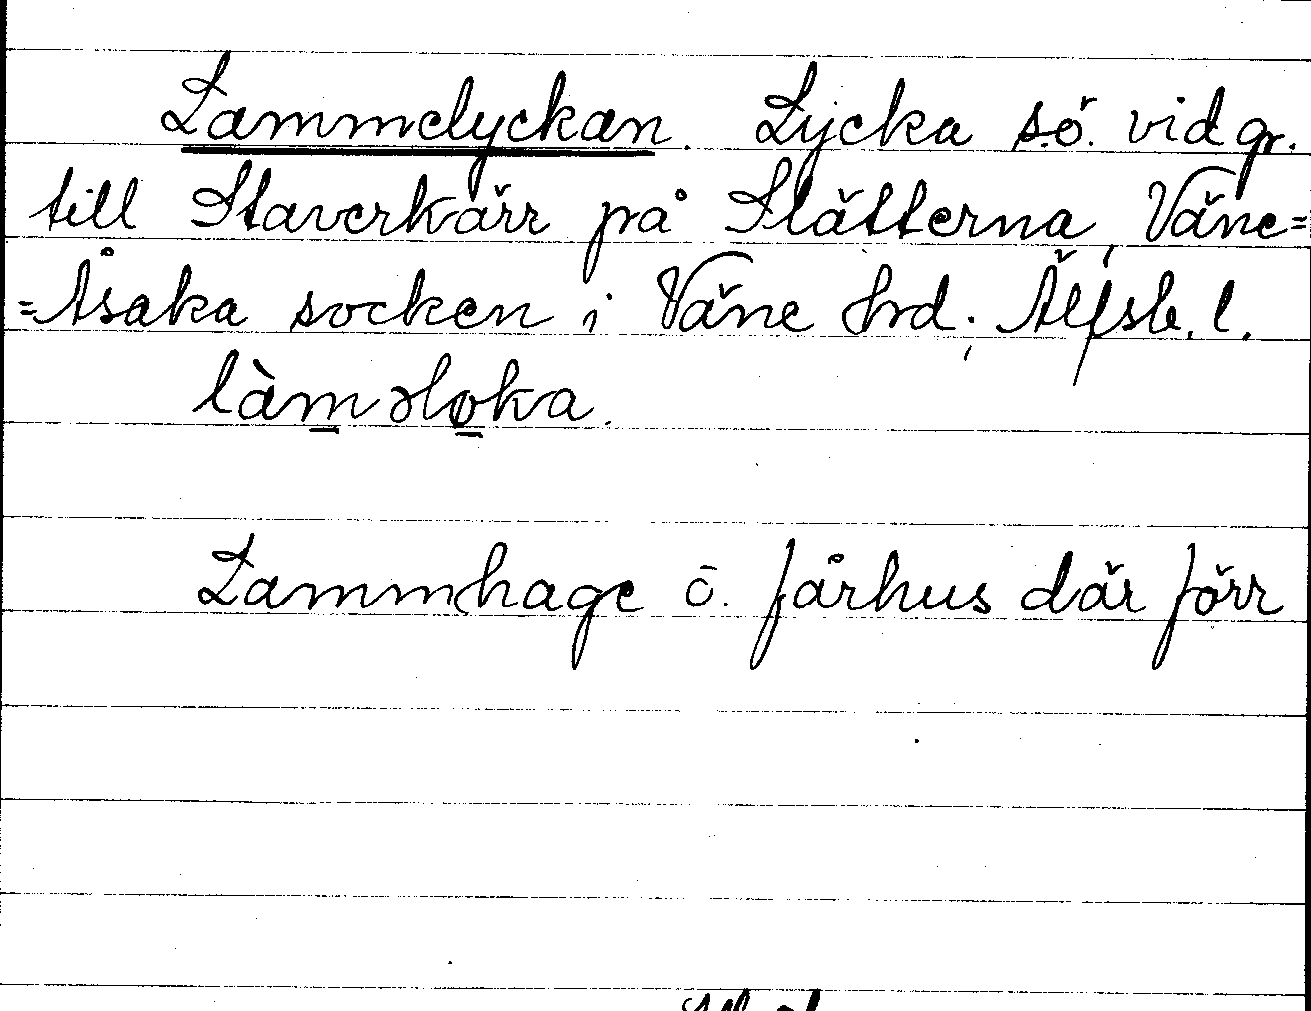 Lammelyckan. Lycka s.ö. vid gr.
till Staverkärr på Slätterna, Väne=
=Åsaka socken i Väne hrd; Älfsb. l.
làməloka.
Lammhage o. fårhus där förr